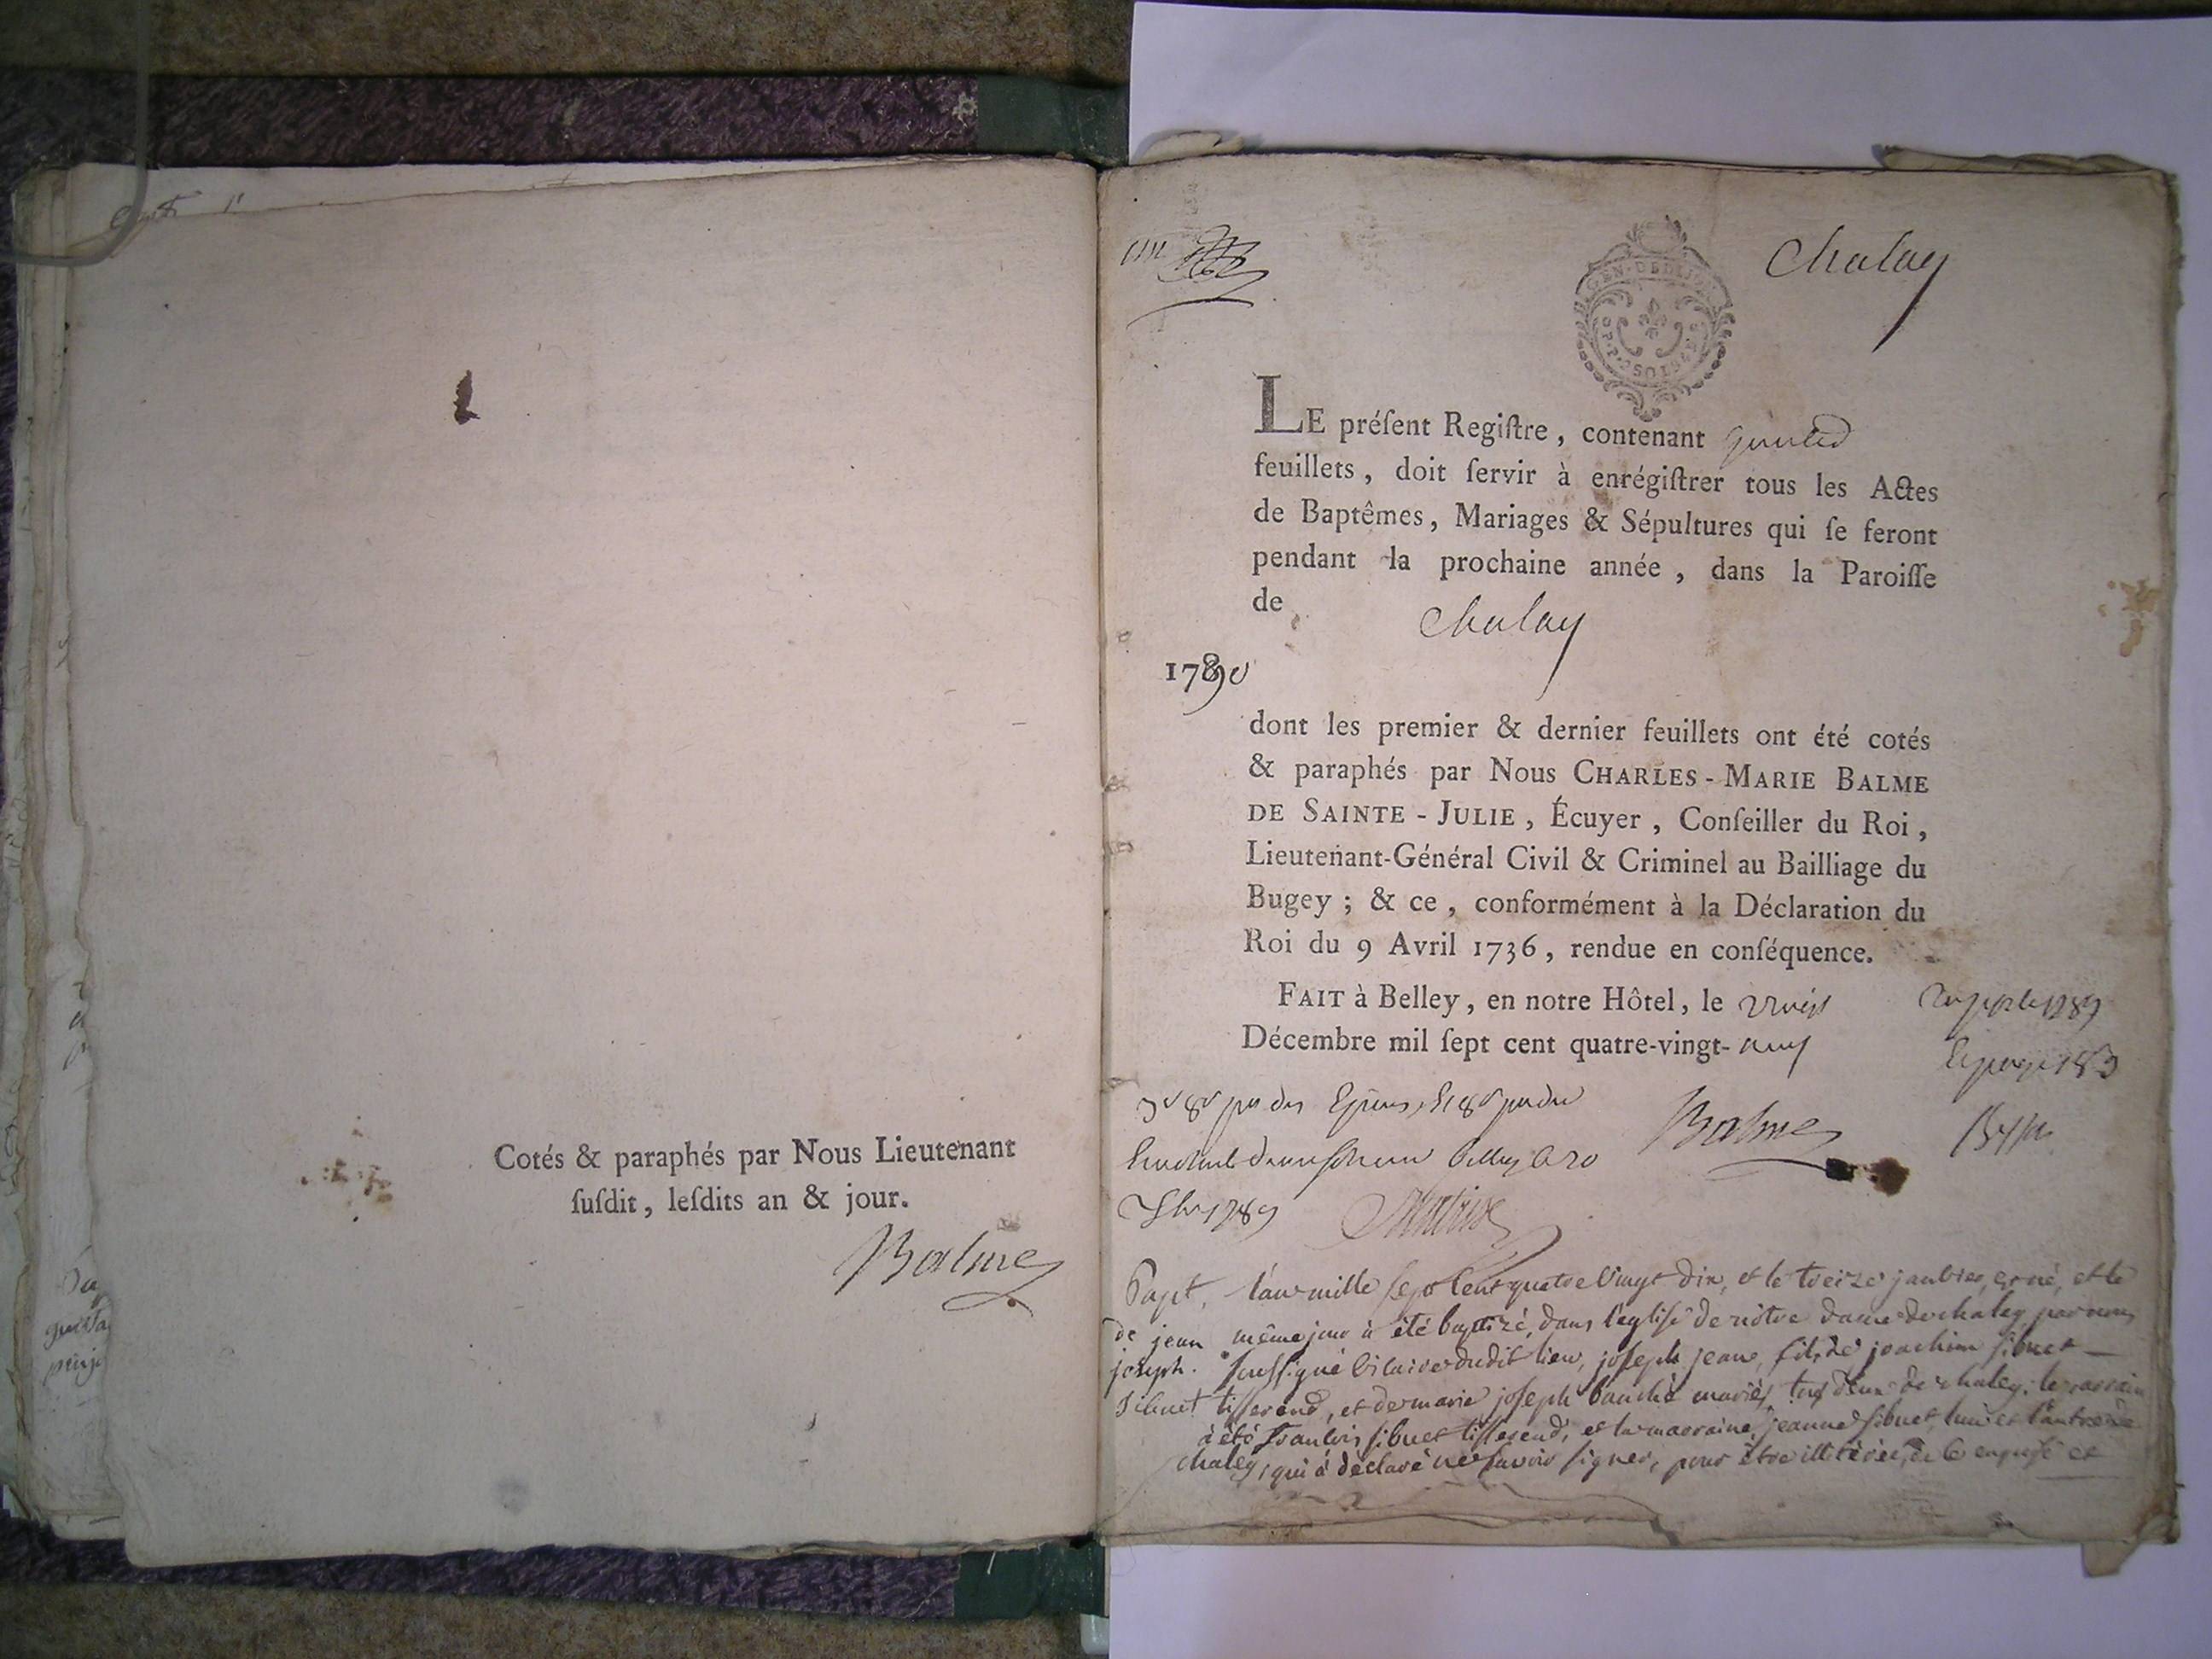 Cotés & paraphés par Nous Lieutenant
ſuſdit, leſdits an & jour.
Balme
Chaley
GEN·DE DIJON
LE préſent Regiſtre, contenant
feuillets, doit ſervir à enrégiſtrer tous les Actes
de Baptêmes, Mariages & Sépultures qui ſe feront
pendant la prochaine année, dans la Paroiſſe
de Chaley
1790
dont les premier & dernier feuillets ont été cotés
& paraphés par Nous CHARLES-MARIE BALME
DE SAINTE-JULIE, Écuyer, Conſeiller du Roi,
Lieutenant-Général Civil & Criminel au Bailliage du
Bugey; & ce, conformément à la Déclaration du
Roi du 9 Avril 1736, rendue en conſéquence.
FAIT à Belley, en notre Hôtel, le vingt
Décembre mil ſept cent quatre-vingt-neuf
Balme
1789
Bapt.
de jean
joseph
Sibuet
l'an mille sept cent quatre vingt dix, et le treize janvier, est né, et le
même jour à été baptizé, dans l'église de nôtre dame de chaley, par nous
soussigné vicaire dudit lieu, joseph jean, fils de joachim sibuet
tisserand, et de marie joseph mariés, tous deux de chaley; le parrain
à été françois sibuet tisserand, et la marraine, jeanne sibuet, l'un et l'autre de
chaley, qui à déclaré ne savoir signer, pour être illitérés, de ce enquis et